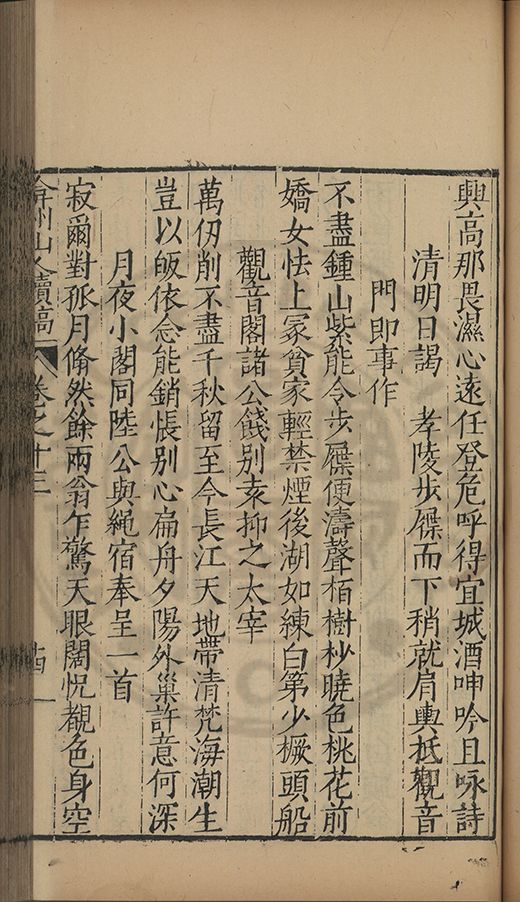 興高那畏濕心遠任登危呼得宜城酒呻吟且咏詩
清明日謁　孝陵步屧而下稍就肩輿抵觀音
門即事作
不盡鍾山紫能令步屧便濤聲栢樹杪曉色桃花前
嬌女怯上冢貧家輕禁煙後湖如練白第少橛頭船
觀音閣諸公餞別袁抑之太宰
萬仞削不盡千秋留至今長江天地帶清梵海潮生
豈以皈依念能銷悵別心扁舟夕陽外巢許意何深
月夜小閣同陸公與繩宿奉呈一首
寂爾對孤月翛然餘兩翁乍驚天眼闊怳覩色身空
弇州山人續稿　卷之十三　十四